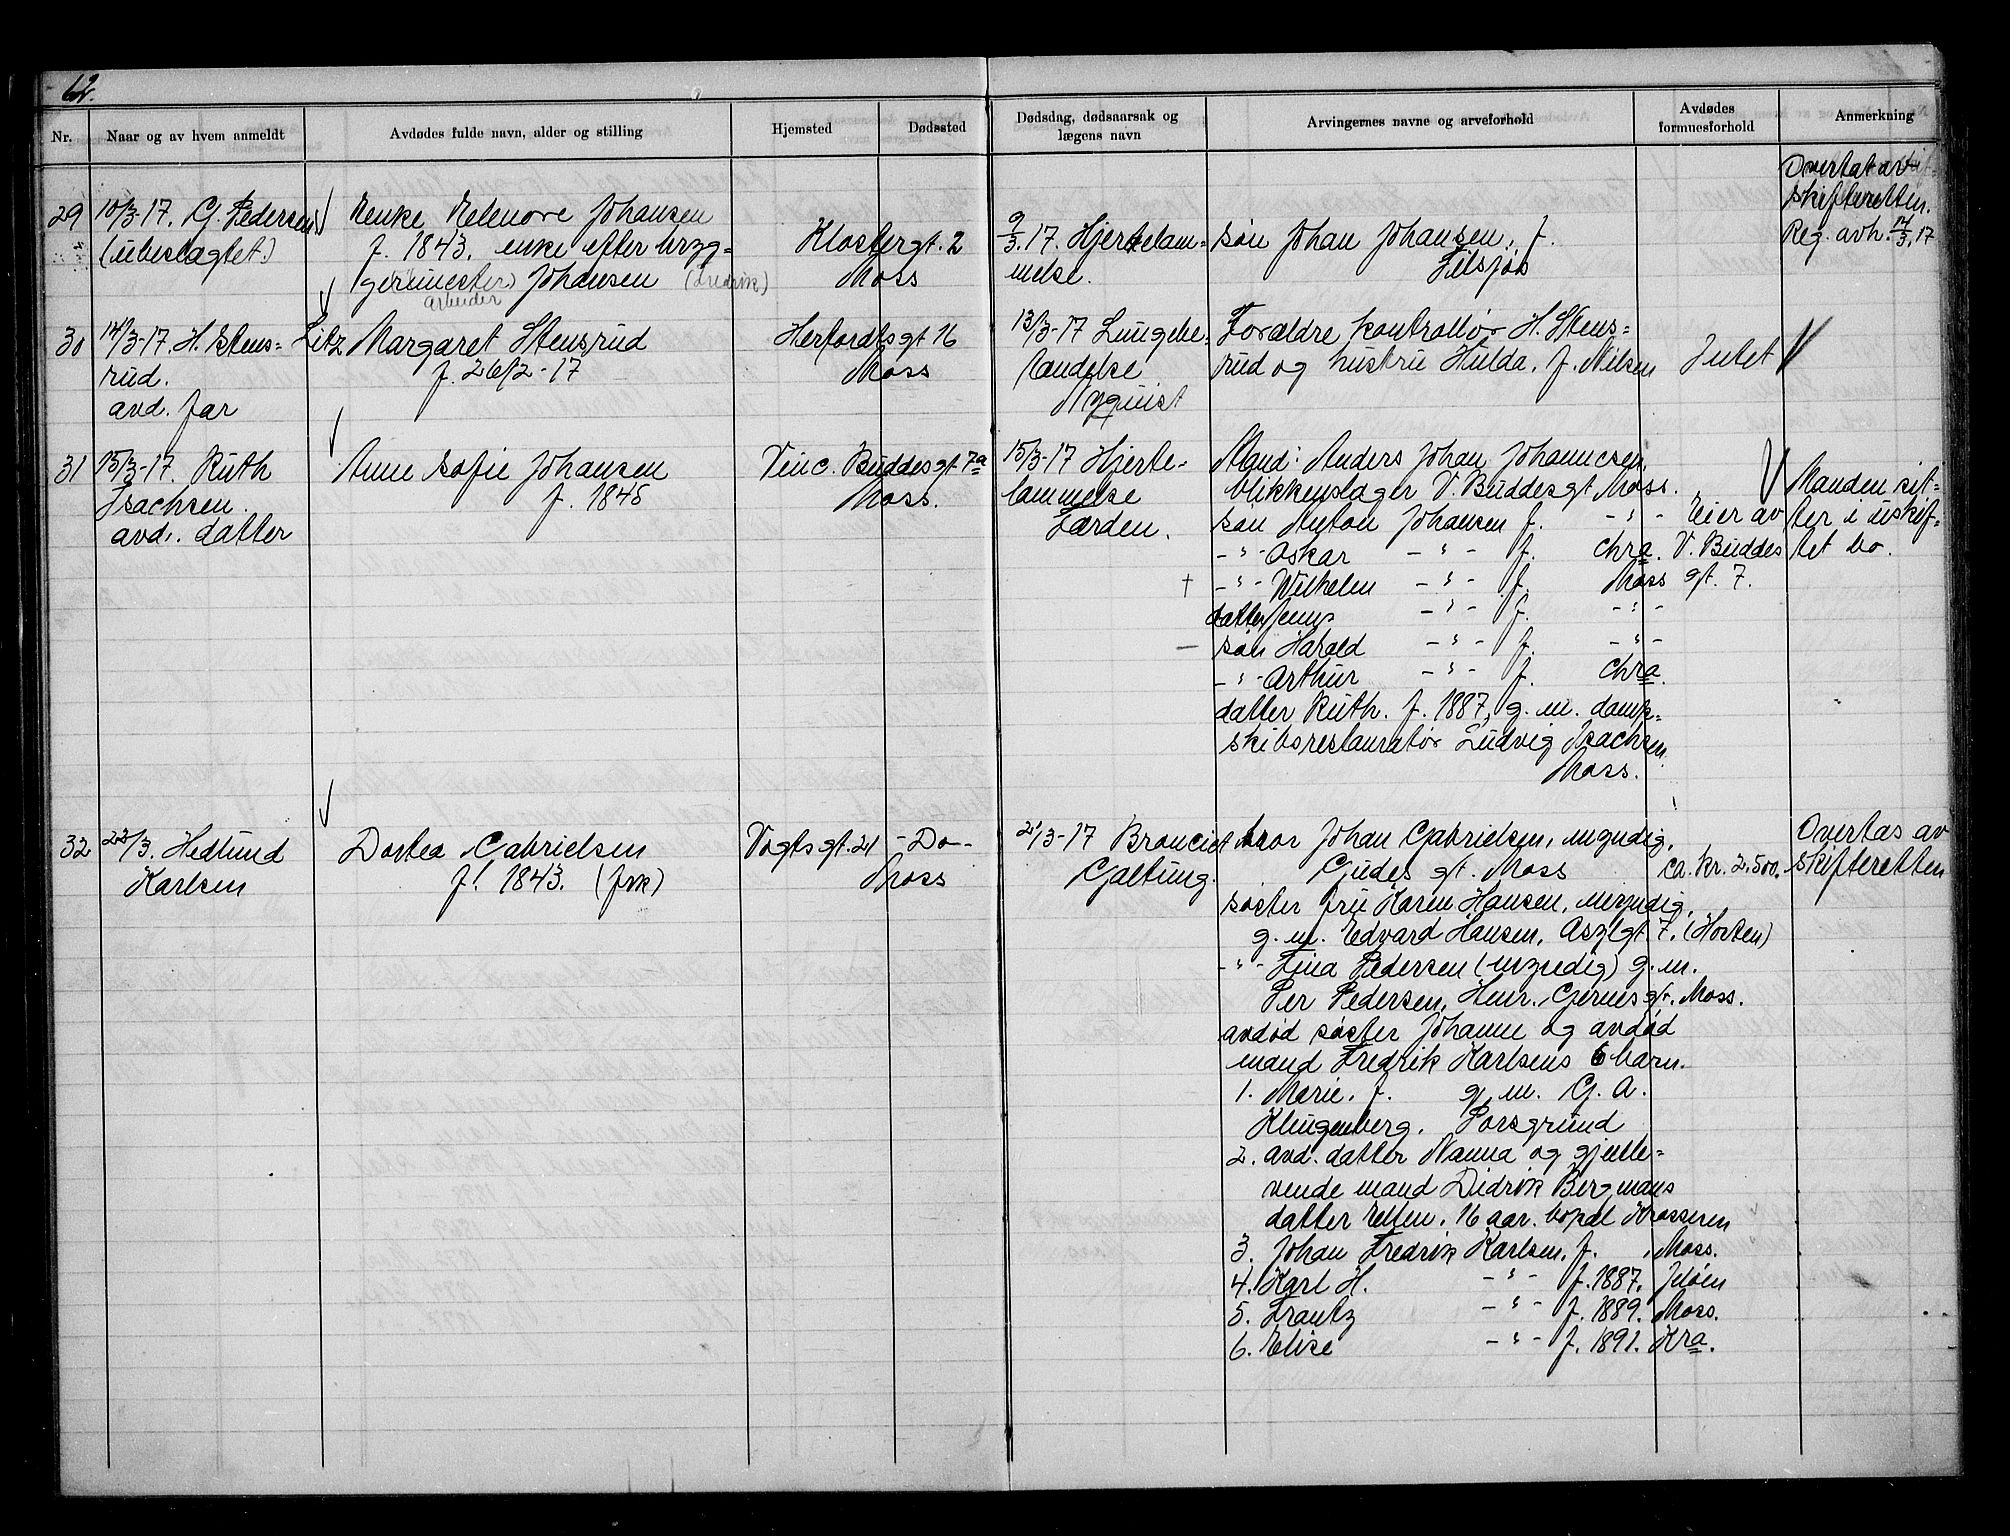 62.
Nr.
Naar og av hvem anmeldt
Avdødes fulde navn, alder og stilling
Hjemsted
Dødssted
Dødsdag, dødsaarsak og
lægens navn
Arvingernes navne og arveforhold
Avdødes
formuesforhold
Anmerkning
29
10/3-17. G. Pedersen
(ubeslagtet)
Enke Elenore Johansen
f. 1843. enke efter bryg=
germester) Johansen (Fredrik)
arbeider
Klostergt. 2
Moss
9/3.17. Hjertelam-
melse.
søn Johan Johansen, f.
Overtat av
skifteretten.
Reg. avh. 14/3.17
30
14/3-17. H. Stens=
rud.
avd. far
Litz Margaret Stensrud
f. 26/2-17
Herfordtsgt 16
Moss
13/3-17 Lungebe-
tændelse
Nyquist
Forældre kontrollør H. Stens=
rud og hustru Hulda, f. Nilsen
Intet
31
15/3-17. Ruth
Isachsen.
avd. datter
Anne Sofie Johansen
f. 1845
Vinc. Buddesgt. 7a
Moss.
15/3-17 Hjerte-
lammelse
Færden.
Mand: Anders Johan Johannesen,
blikkenslager V. Buddesgt Moss.
søn Anton Johansen f. -"-
-"- Oskar -"- f. Chra.
+ -"- Wilhelm -"- f. Moss
datter Jenny -"- f. -"-
— søn Harald -"- f. -"-
-"- Arthur -"- f. Chra.
datter Ruth. f. 1887, g. m. damp=
skibsrestauratør Ludvig Isachsen
Moss.
Eier av
V. Buddes
gt. 7.
Manden sit=
ter i uskif=
tet bo.
32
22/3. Hedlund
Karlsen
Dortea Gabrielsen
f. 1843. (frk)
Vogtsgt. 21
-Do-
Moss
21/3-17 Bronciet
Galtung.
bror Johan Gabrielsen, myndig,
Gudes gt. Moss
søster fru Karen Hansen, myndig,
g. m. Edvard Hansen, Asylgt. 7. (Horten)
-"- Fina Pedersen (myndig) g. m.
Per Pedersen, Henr. Gernesgt. Moss.
avdød søster Johanne og avdød
mand Fredrik Karlsens 6 barn.
1. Marie, f. g. m. G. A.
Klingenberg. Porsgrund
2. avd. datter Nanna og gjenle=
vende mand Didrik Bergmans
datter Ellen, 16 aar. bopæl Krosseren
3. Johan Fredrik Karlsen, f. Moss.
4. Karl H. -"- f. 1887. Jeløen
5. Frantz -"- f. 1889. Moss.
6. Elise -"- f. 1891. Kra.
ca. kr. 2.500.
Overtas av
skifteretten